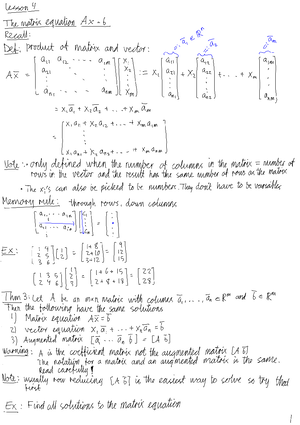 Lesson 4
The matrix equation Ax = b
Recall:
Def: product of matrix and vector:
= ā₁ ∈ ℝⁿ = ā₂ = āₘ
Ax̄ = [a₁₁ a₁₂ ... a₁ₘ; a₂₁ a₂₂ ... a₂ₘ; ⋮ ⋮ ⋮; aₙ₁ ... aₙₘ] [x₁; x₂; ⋮; xₘ] := x₁ [a₁₁; a₂₁; ⋮; aₙ₁] + x₂ [a₁₂; a₂₂; ⋮; aₙ₂] + ... + xₘ [a₁ₘ; a₂ₘ; ⋮; aₙₘ]
= x₁ā₁ + x₂ā₂ + ... + xₘāₘ
= [x₁a₁₁ + x₂a₁₂ + ... + xₘa₁ₘ; ⋮; x₁aₙ₁ + x₂aₙ₂ + ... + xₘaₙₘ]
Note: • only defined when the number of columns in the matrix = number of
rows in the vector and the result has the same number of rows as the matrix
• The xᵢ's can also be picked to be numbers. They don't have to be variables
Memory rule: through rows, down columns
Ex: [1 4; 2 5; 3 6] [1; 2] = [1+8; 2+10; 3+12] = [9; 12; 15]
[1 3 5; 2 4 6] [1; 2; 3] = [1+6+15; 2+8+18] = [22; 28]
Thm 3: Let A be an m×n matrix with columns ā₁, ..., āₙ ∈ ℝᵐ and b̄ ∈ ℝᵐ
Then the following have the same solutions
1) Matrix equation Ax̄ = b̄
2) vector equation x₁ā₁ + ... + xₙāₙ = b̄
3) Augmented matrix [ā₁ ... āₙ b̄] = [A b̄]
Warning: A is the coefficient matrix not the augmented matrix [A b̄]
The notation for a matrix and an augmented matrix is the same.
Read carefully!
Note: usually row reducing [A b̄] is the easiest way to solve so try that
first
Ex: Find all solutions to the matrix equation
1